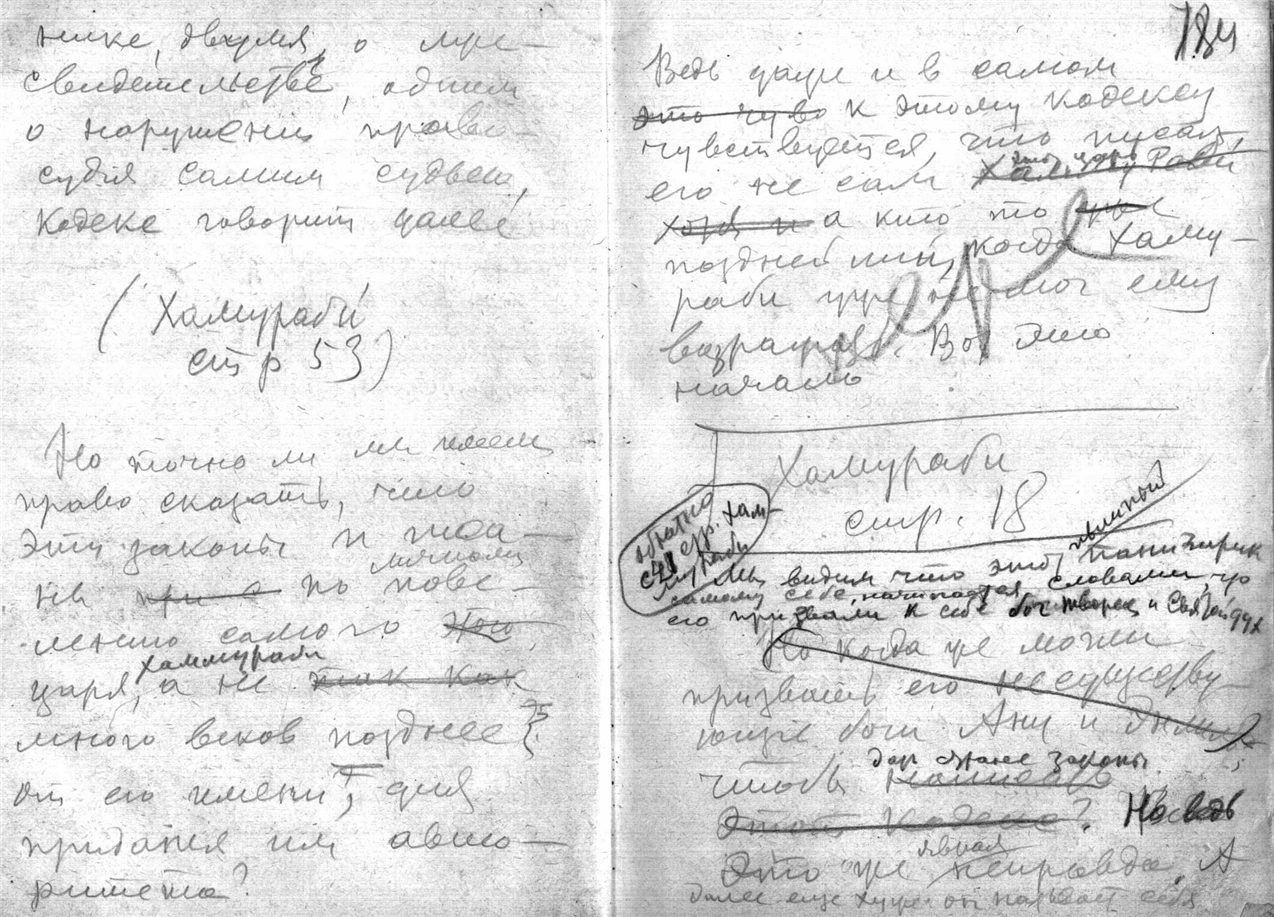 нике, двумя, о лже-
свидетельстве, одним
о нарушении право-
судия самим судьею,
Кодекс говорит далее
(Хамураби
стр 53)
Но точно ли мы имеем
право сказать, что
эти законы и
ны при с по повѣ-
лению самого
царя, Хаммураби а не так как
много веков позднее
от его имени, для
придания им авто-
ритета?
184
Ведь даже и в самом
это чувво к этому кодексу
чувствуется, что писал
его не сам этот царь
хотя и а кто то
позднейший, когда Хаму-
раби уже не мог ему
возражать. Вот это
начало
Хамураби
стр. 18
обратно
с 48 стр. Хам-
мураби
Мы видим что этот панигирик
самому себе начинается словами, что
его призвали к себе бог творец и Святой дух
Но когда же могли
призвать его несуществу-
ющие боги Ану и
чтобы дар законы
Этот Кодекс? Но ведь
Это же явная неправда. А
далее еще хуже: он называет себя